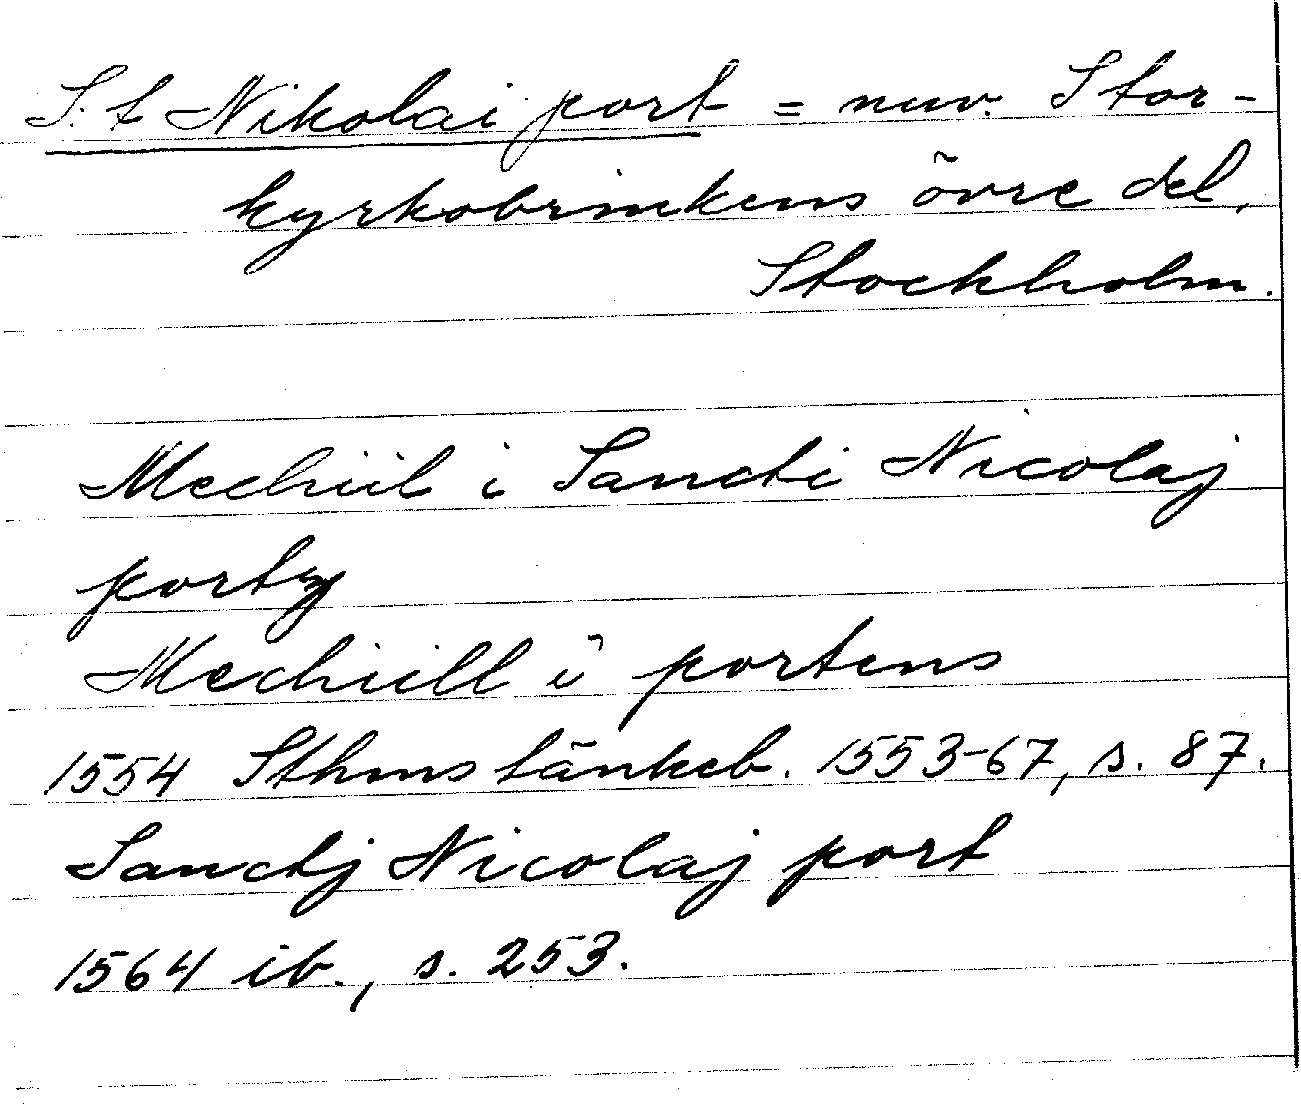 S:t Nikolai port = nuv. Stor-
kyrkobrinkens övre del,
Stockholm.
Mechiil i Sancti Nicolaj
porty
Mechiell i portens
1554 Sthms tänkeb. 1553-67, s. 87.
Sanctj Nicolaj port
1564 ib., s. 253.